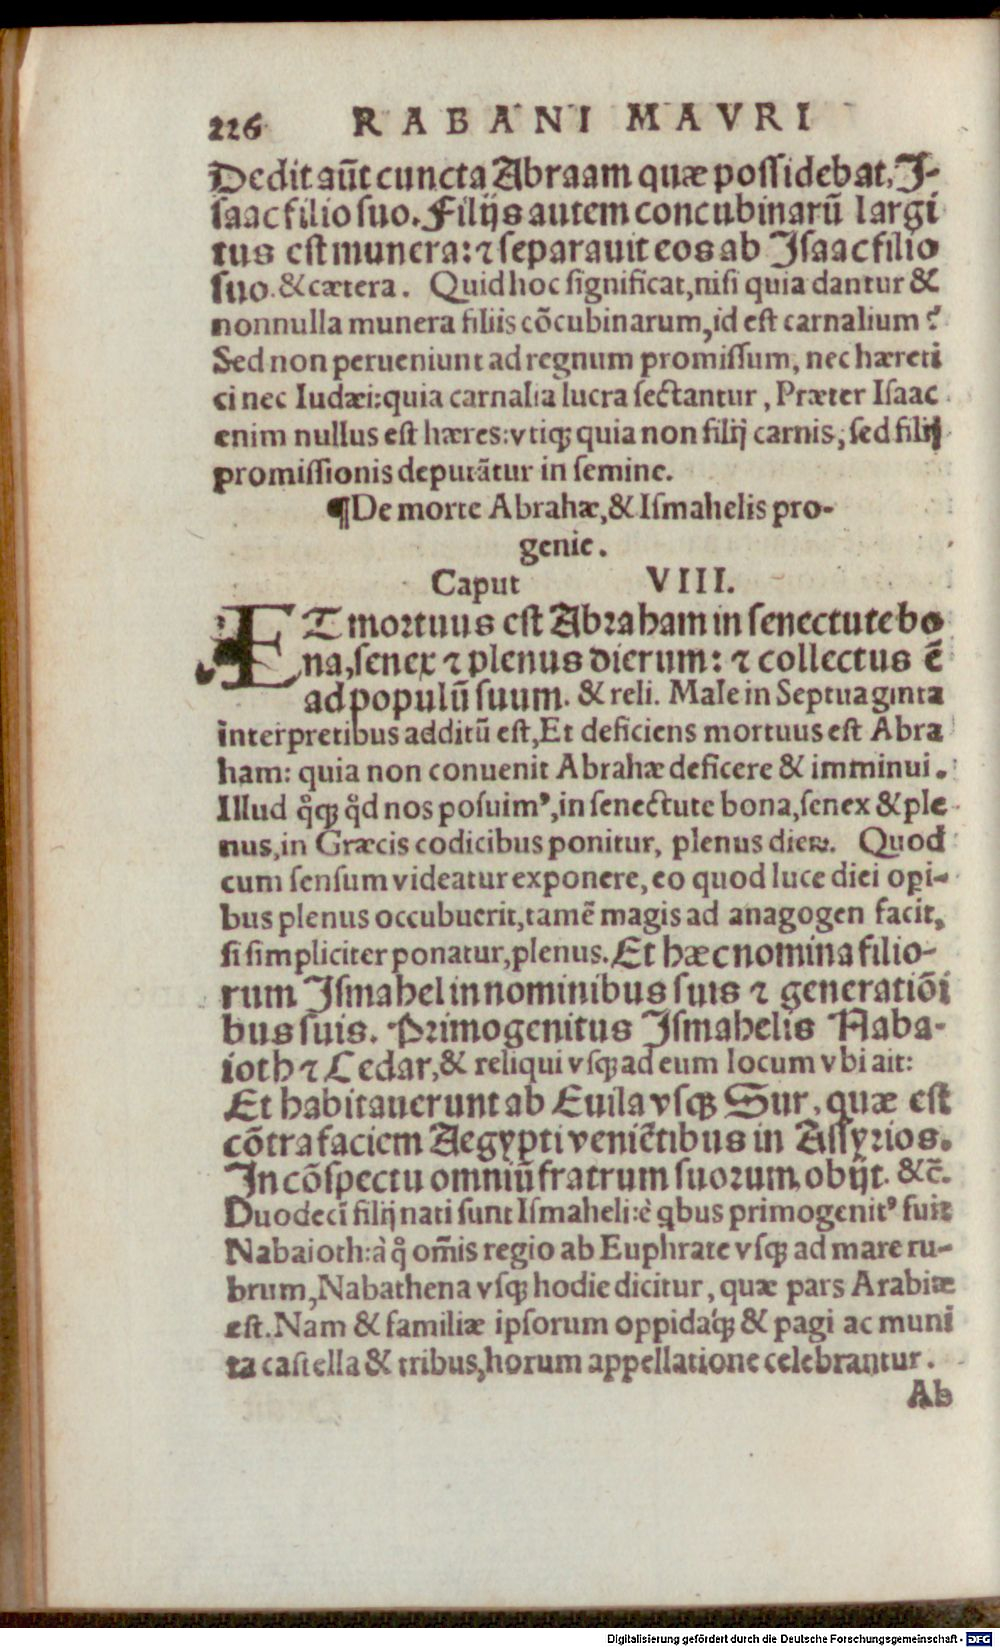 226 RABANI MAVRI
Dedit aūt cuncta Abraam quæ possidebat, I-
saac filio suo. Filijs autem concubinarū largi
tus est munera: ⁊ separauit eos ab Isaac filio
suo. & cætera. Quid hoc significat, nisi quia dantur &
nonnulla munera filiis cōcubinarum, id est carnalium?
Sed non perueniunt ad regnum promissum, nec hæreti
ci nec Iudæi: quia carnalia lucra sectantur, Præter Isaac
enim nullus est hæres: vtiqꝫ quia non filij carnis, sed filij
promissionis deputātur in semine.
¶De morte Abrahæ, & Ismahelis pro-
genie.
Caput VIII.
ET mortuus est Abraham in senectute bo
na, senex ⁊ plenus dierum: ⁊ collectus ē
ad populū suum. & reli. Male in Septuaginta
interpretibus additū est, Et deficiens mortuus est Abra
ham: quia non conuenit Abrahæ deficere & imminui.
Illud qͦqꝫ qͦd nos posuimꝰ, in senectute bona, senex & ple
nus, in Græcis codicibus ponitur, plenus dieꝝ. Quod
cum sensum videatur exponere, eo quod luce diei opi-
bus plenus occubuerit, tamē magis ad anagogen facit,
si simpliciter ponatur, plenus. Et hæc nomina filio-
rum Ismahel in nominibus suis ⁊ generatiōi
bus suis. Primogenitus Ismahelis Naba-
ioth ⁊ Cedar, & reliqui vsqꝫ ad eum locum vbi ait:
Et habitauerunt ab Euila vsqꝫ Sur, quæ est
cōtra faciem Aegypti veniētibus in Assyrios.
In cōspectu omniū fratrum suorum obijt. &c̄.
Duodecī filij nati sunt Ismaheli: è qbus primogenitꝰ fuit
Nabaioth: à qͦ om̄is regio ab Euphrate vsqꝫ ad mare ru-
brum, Nabathena vsqꝫ hodie dicitur, quæ pars Arabiæ
est. Nam & familiæ ipsorum oppidáqꝫ & pagi ac muni
ta castella & tribus, horum appellatione celebrantur.
Ab
Digitalisierung gefördert durch die Deutsche Forschungsgemeinschaft - DFG